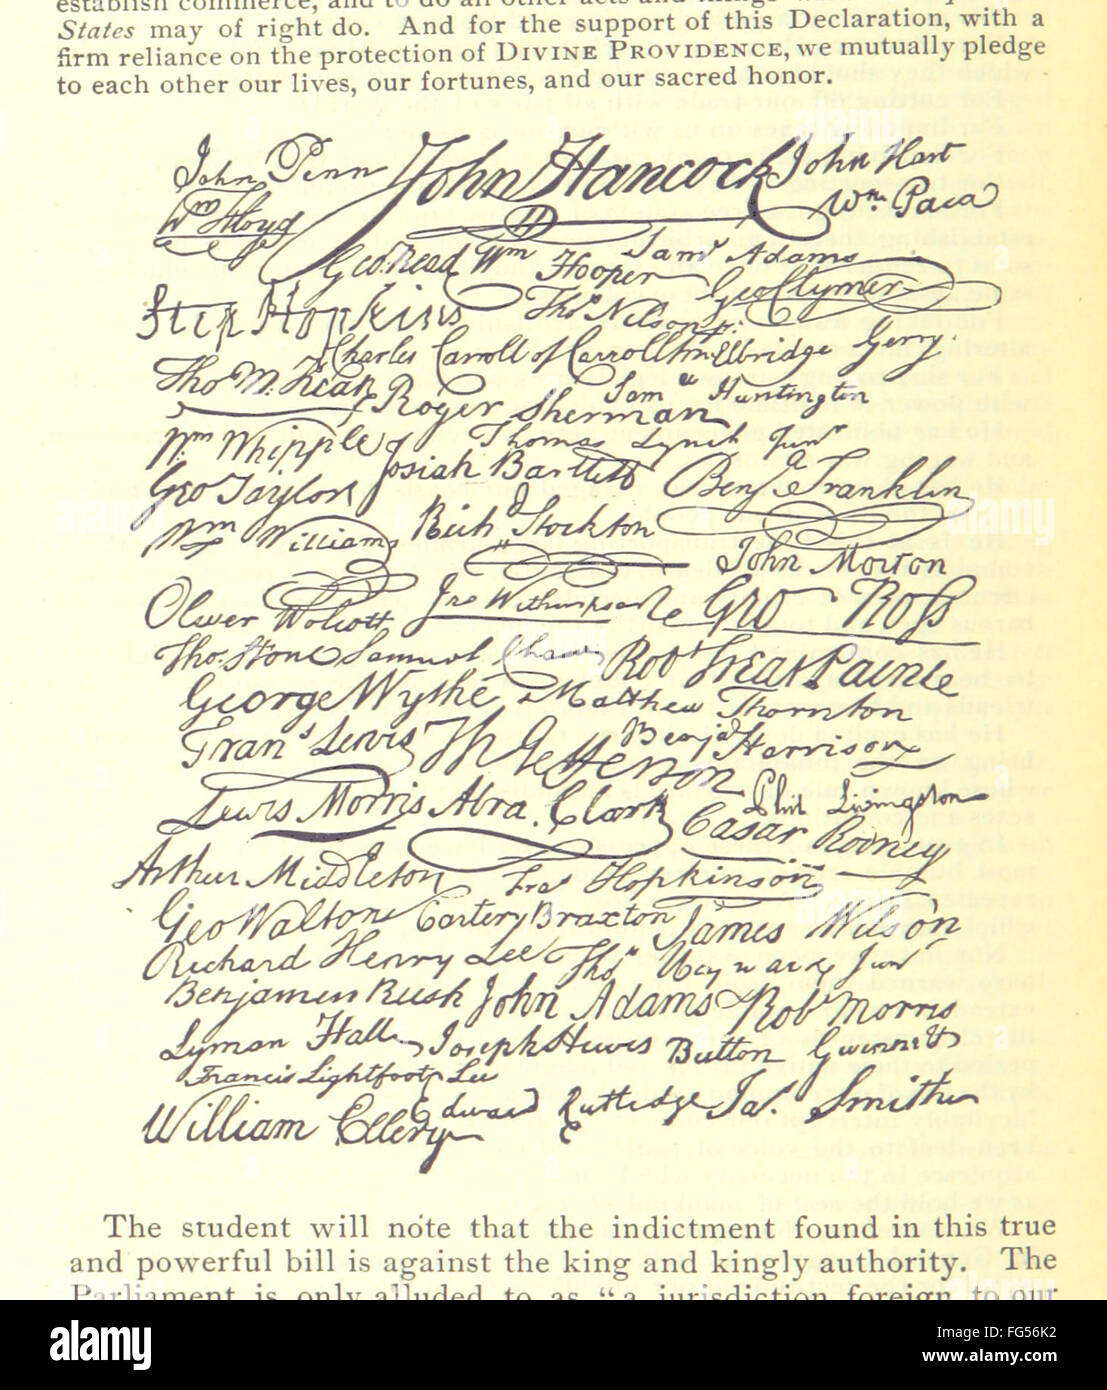 States may of right do. And for the support of this Declaration, with a
firm reliance on the protection of DIVINE PROVIDENCE, we mutually pledge
to each other our lives, our fortunes, and our sacred honor.
John Penn John Hancock John Hart
Wm Floyd Wm Paca
Geo Read Wm Hooper Saml Adams
Geo Clymer
Step Hopkins Thos Nelson jr.
Charles Carroll of Carrollton Elbridge Gerry
Tho M. Kean Roger Sherman Saml Huntington
Wm Whipple Thomas Lynch Junr
Josiah Bartlett Benj Franklin
Geo Taylor Richd Stockton
Wm Williams John Morton
Oliver Wolcott Jno Witherspoon Geo Ross
Thos Stone Samuel Chase Robt Treat Paine
George Wythe Matthew Thornton
Frans Lewis Th Jefferson Benja Harrison
Lewis Morris Abra. Clark Phil Livingston
Casar Rodney
Arthur Middleton Fras Hopkinson
Geo Walton Carter Braxton James Wilson
Richard Henry Lee Thos Heyward Junr
Benjamin Rush John Adams Robt Morris
Lyman Hall Joseph Hewes Button Gwinnett
Francis Lightfoot Lee
William Ellery Edward Rutledge Jas. Smith
The student will note that the indictment found in this true
and powerful bill is against the king and kingly authority. The
Parliament is only alluded to as "a jurisdiction foreign to our
alamy
Image ID: FG56K2
www.alamy.com